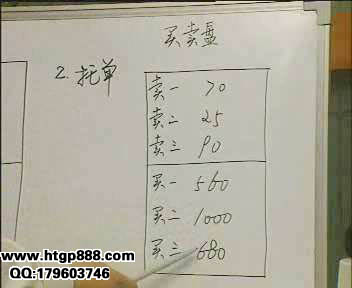 买卖盘
2. 托单
卖一 70
卖二 25
卖三 90
买一 560
买二 1000
买三 680
www.htgp888.com
QQ:179603746